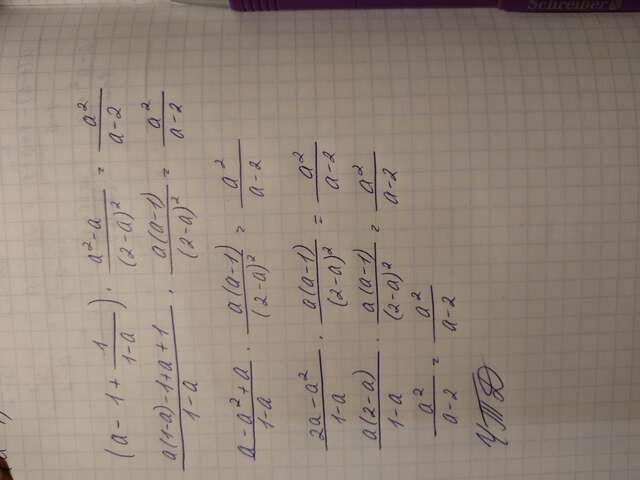 (a - 1 + 1/(1-a)) · (a² - a)/(2-a)² = a²/(a-2)
(a(1-a) - 1 + a + 1)/(1-a) · a(a-1)/(2-a)² = a²/(a-2)
(a - a² + a)/(1-a) · a(a-1)/(2-a)² = a²/(a-2)
(2a - a²)/(1-a) · a(a-1)/(2-a)² = a²/(a-2)
a(2-a)/(1-a) · a(a-1)/(2-a)² = a²/(a-2)
a²/(a-2) = a²/(a-2)
ЧТД
Schreiber